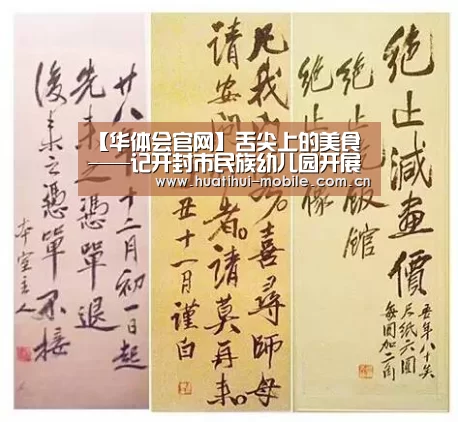 【华体会官网】舌尖上的美食
——记开封市民族幼儿园开展
www.huatihui-mobile.com.cn
絕止減畫價
絕止吃飯館
絕止像
吾年八十矣
尺紙六圓
每圓加二角
凡我喜尋師母
請安問者請莫再来
丑十一月謹白
廿八年十二月初一日起
先来之憑單退
後来之憑單不接
本室主人